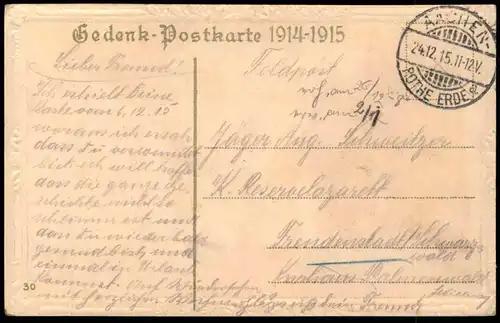 Gedenk-Postkarte 1914-1915
AACHEN-
24.12.15.11-12V.
ROTHE ERDE
Lieber Freund!
Ich erhielt Deine
Karte vom 6.12.15
woraus ich ersah
dass du verwundet
bist ich will hoffen
dass die ganze Ge-
schichte nicht so
schlimm ist und
dass Du wieder bald
gesund bist und
einmal in Urlaub
kommst. Auf Wiedersehen
mit herzlichen Dein Freund
Feldpost
2/1
Jäger Aug. Schweitzer
K. Reservelazarett
Freudenstadt Schwarz
wald
Kurhaus Palmenwald
30